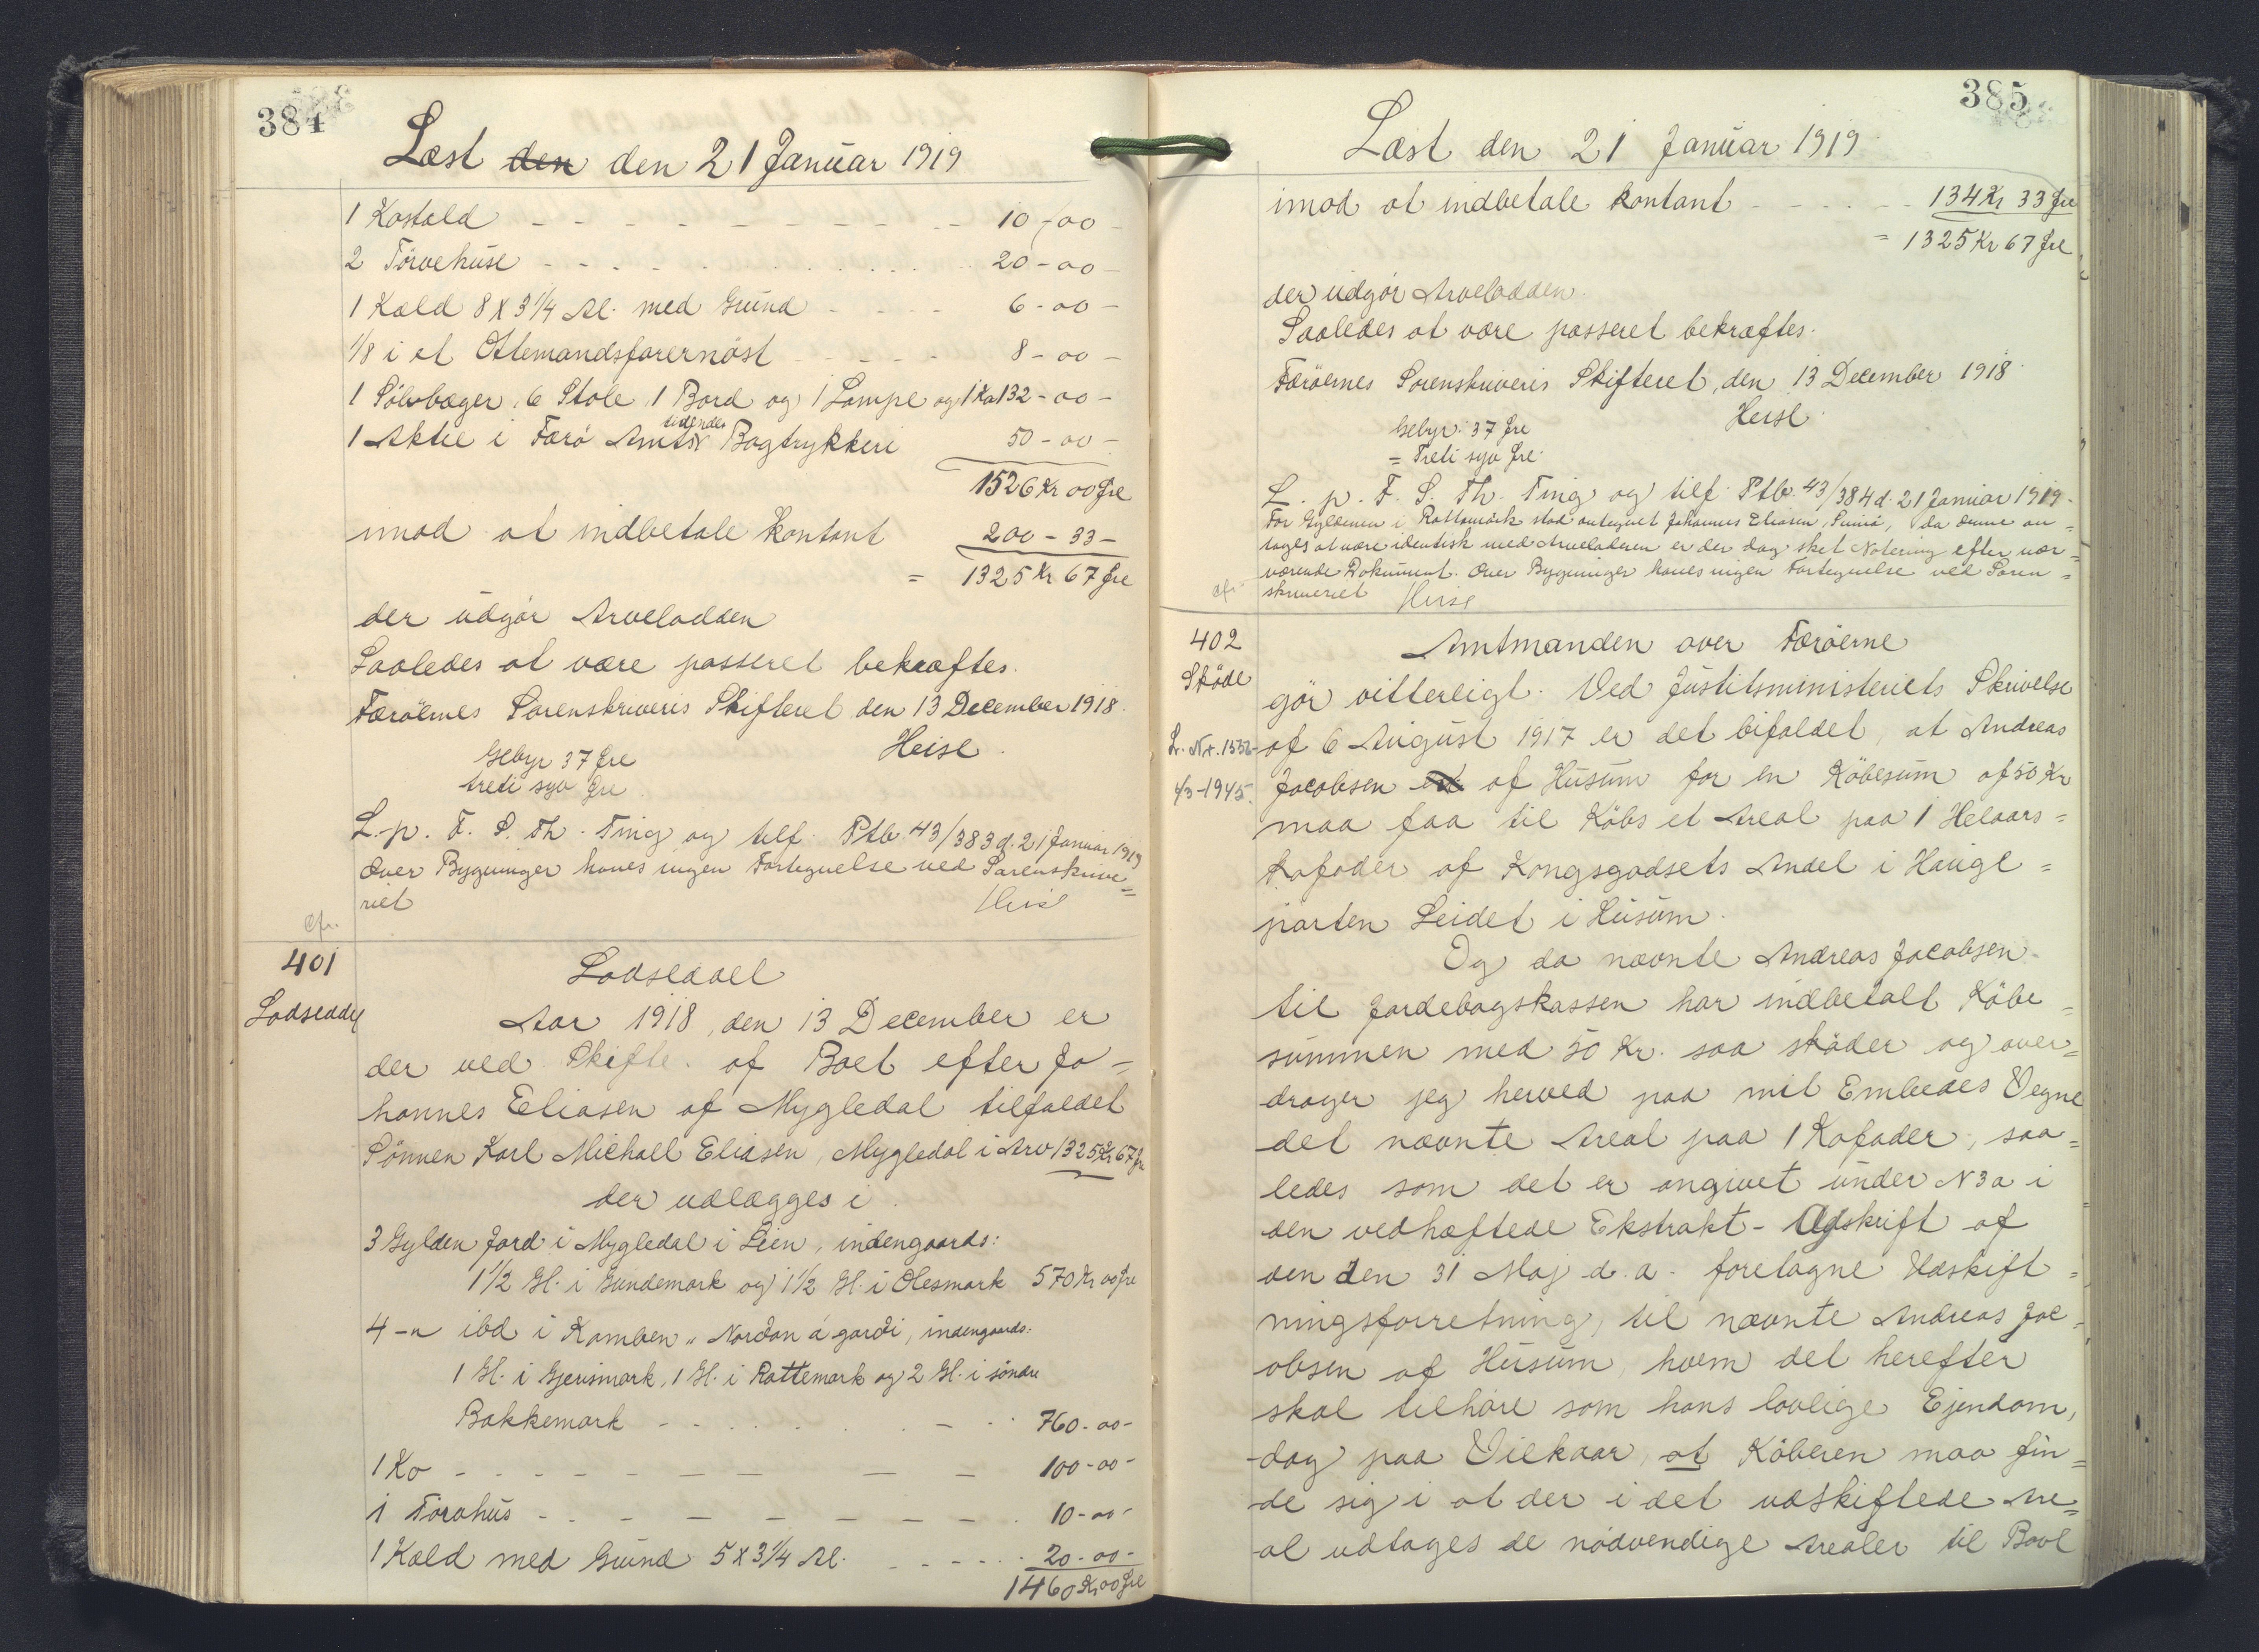 384
Læst den den 21 Januar 1919
1 Kostald - - - - - - - - - - 10-00-
2 Törvehuse - - - - 20-00-
1 Kæld 8 x 3 1/4 Al. med Grund - - - - 6-00-
1/8 i et Ottemandsfarernöst - - - - 8-00-
1 Sölvbæger, 6 Stole, 1 Bord og 1 Lampe og 1 Ko 132-00-
tidendes
1 Aktie i Færö Amts Bogtrykkeri 50-00-
1526 Kr 00 Øre
imod at indbetale kontant 200-33-
= 1325 Kr 67 Øre
der udgör Arvelodden
Saaledes at være passeret bekræftes.
Færöernes Sorenskriveris Skifteret den 13 December 1918.
Gebyr 37 Øre Heise.
treti syv Øre.
L. p. F. S. Th. Ting og tilf. Ptb. 43/383 d. 21 Januar 1919
Over Bygninger haves ingen Fortegnelse ved Sorenskrive=
riet Heise
cfr.
401
Lodseddel
Lodseddel
Aar 1918, den 13 December er
der ved Skifte af Boet efter Jo-
hannes Eliasen af Mygledal tilfaldet
Sönnen Karl Michall Eliasen, Mygledal i Arv 1325 Kr 67 Øre
der udlægges i
3 Gylden Jord i Mygledal i Leen, indengaards:
1 1/2 Gl. i Gundemark og 1 1/2 Gl. i Olesmark 570 Kr 00 Øre
4 -n ibd i Kamben „ Nordan á gardi, indengaards:
1 Gl. i Gjerismark, 1 Gl. i Rottemark og 2 Gl. i söndre
Bakkemark - - - - 760-00-
1 Ko - - - - - - - - - - 100-00-
1 Törvhus - - - - - - - - - 10-00-
1 Kæld med Grund 5 x 3 1/4 Al. - - - - 20-00-
1460 Kr 00 Øre
385
Læst den 21 Januar 1919
imod at indbetale kontant - - - - 134 Kr 33 Øre
= 1325 Kr 67 Øre
der udgör Arvelodden.
Saaledes at være passeret bekræftes.
Færöernes Sorenskriveris Skifteret, den 13 December 1918.
Heise.
Gebyr: 37 Øre
= Treti syv Øre.
L. p. F. S. Th. Ting og tilf. Ptb. 43/384 d. 21 Januar 1919.
For Gyldenen i Rottemörk stod antegnet Johannes Eliasen, Sumö, da denne an=
tages at være identisk med Arveladeren er der dog sket Notering efter nær=
værende Dokument. Over Bygninger haves ingen Fortegnelse ved Soren=
skriveriet Heise
cfr.
402
Sköde
L. Nr. 1532-
4/3-1945.
Amtmanden over Færöerne
gör vitterligt: Ved Justitsministeriets Skrivelse
af 6 August 1917 er det bifaldet, at Andreas
Jacobsen af Husum for en Köbesum af 50 Kr
maa faa til Köbs et Areal paa 1 Helaars=
kofoder af Kongsgodsets Andel i Hauge=
parten Leidet i Husum.
Og da nævnte Andreas Jacobsen
til Jordebogskassen har indbetalt Köbe=
summen med 50 Kr. saa sköder og over=
drager jeg herved paa mit Embedes Vegne
det nævnte Areal paa 1 Kofoder, saa=
ledes som det er angivet under N 3a i
den vedhæftede Ekstrakt-Afskrift af
den den 31 Maj d. a. foretagne Udskift=
ningsforretning, til nævnte Andreas Jac=
obsen af Husum, hvem det herefter
skal tilhöre som hans lovlige Ejendom,
dog paa Vilkaar, at Köberen maa fin=
de sig i at der i det udskiftede Are=
al udtages de nödvendige Arealer til Baal